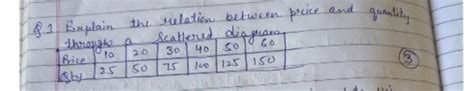 Q1 Explain the relation between price and quantity
through a Scattered diagram
Price 10 20 30 40 50 60
Qty 25 50 75 100 125 150
3